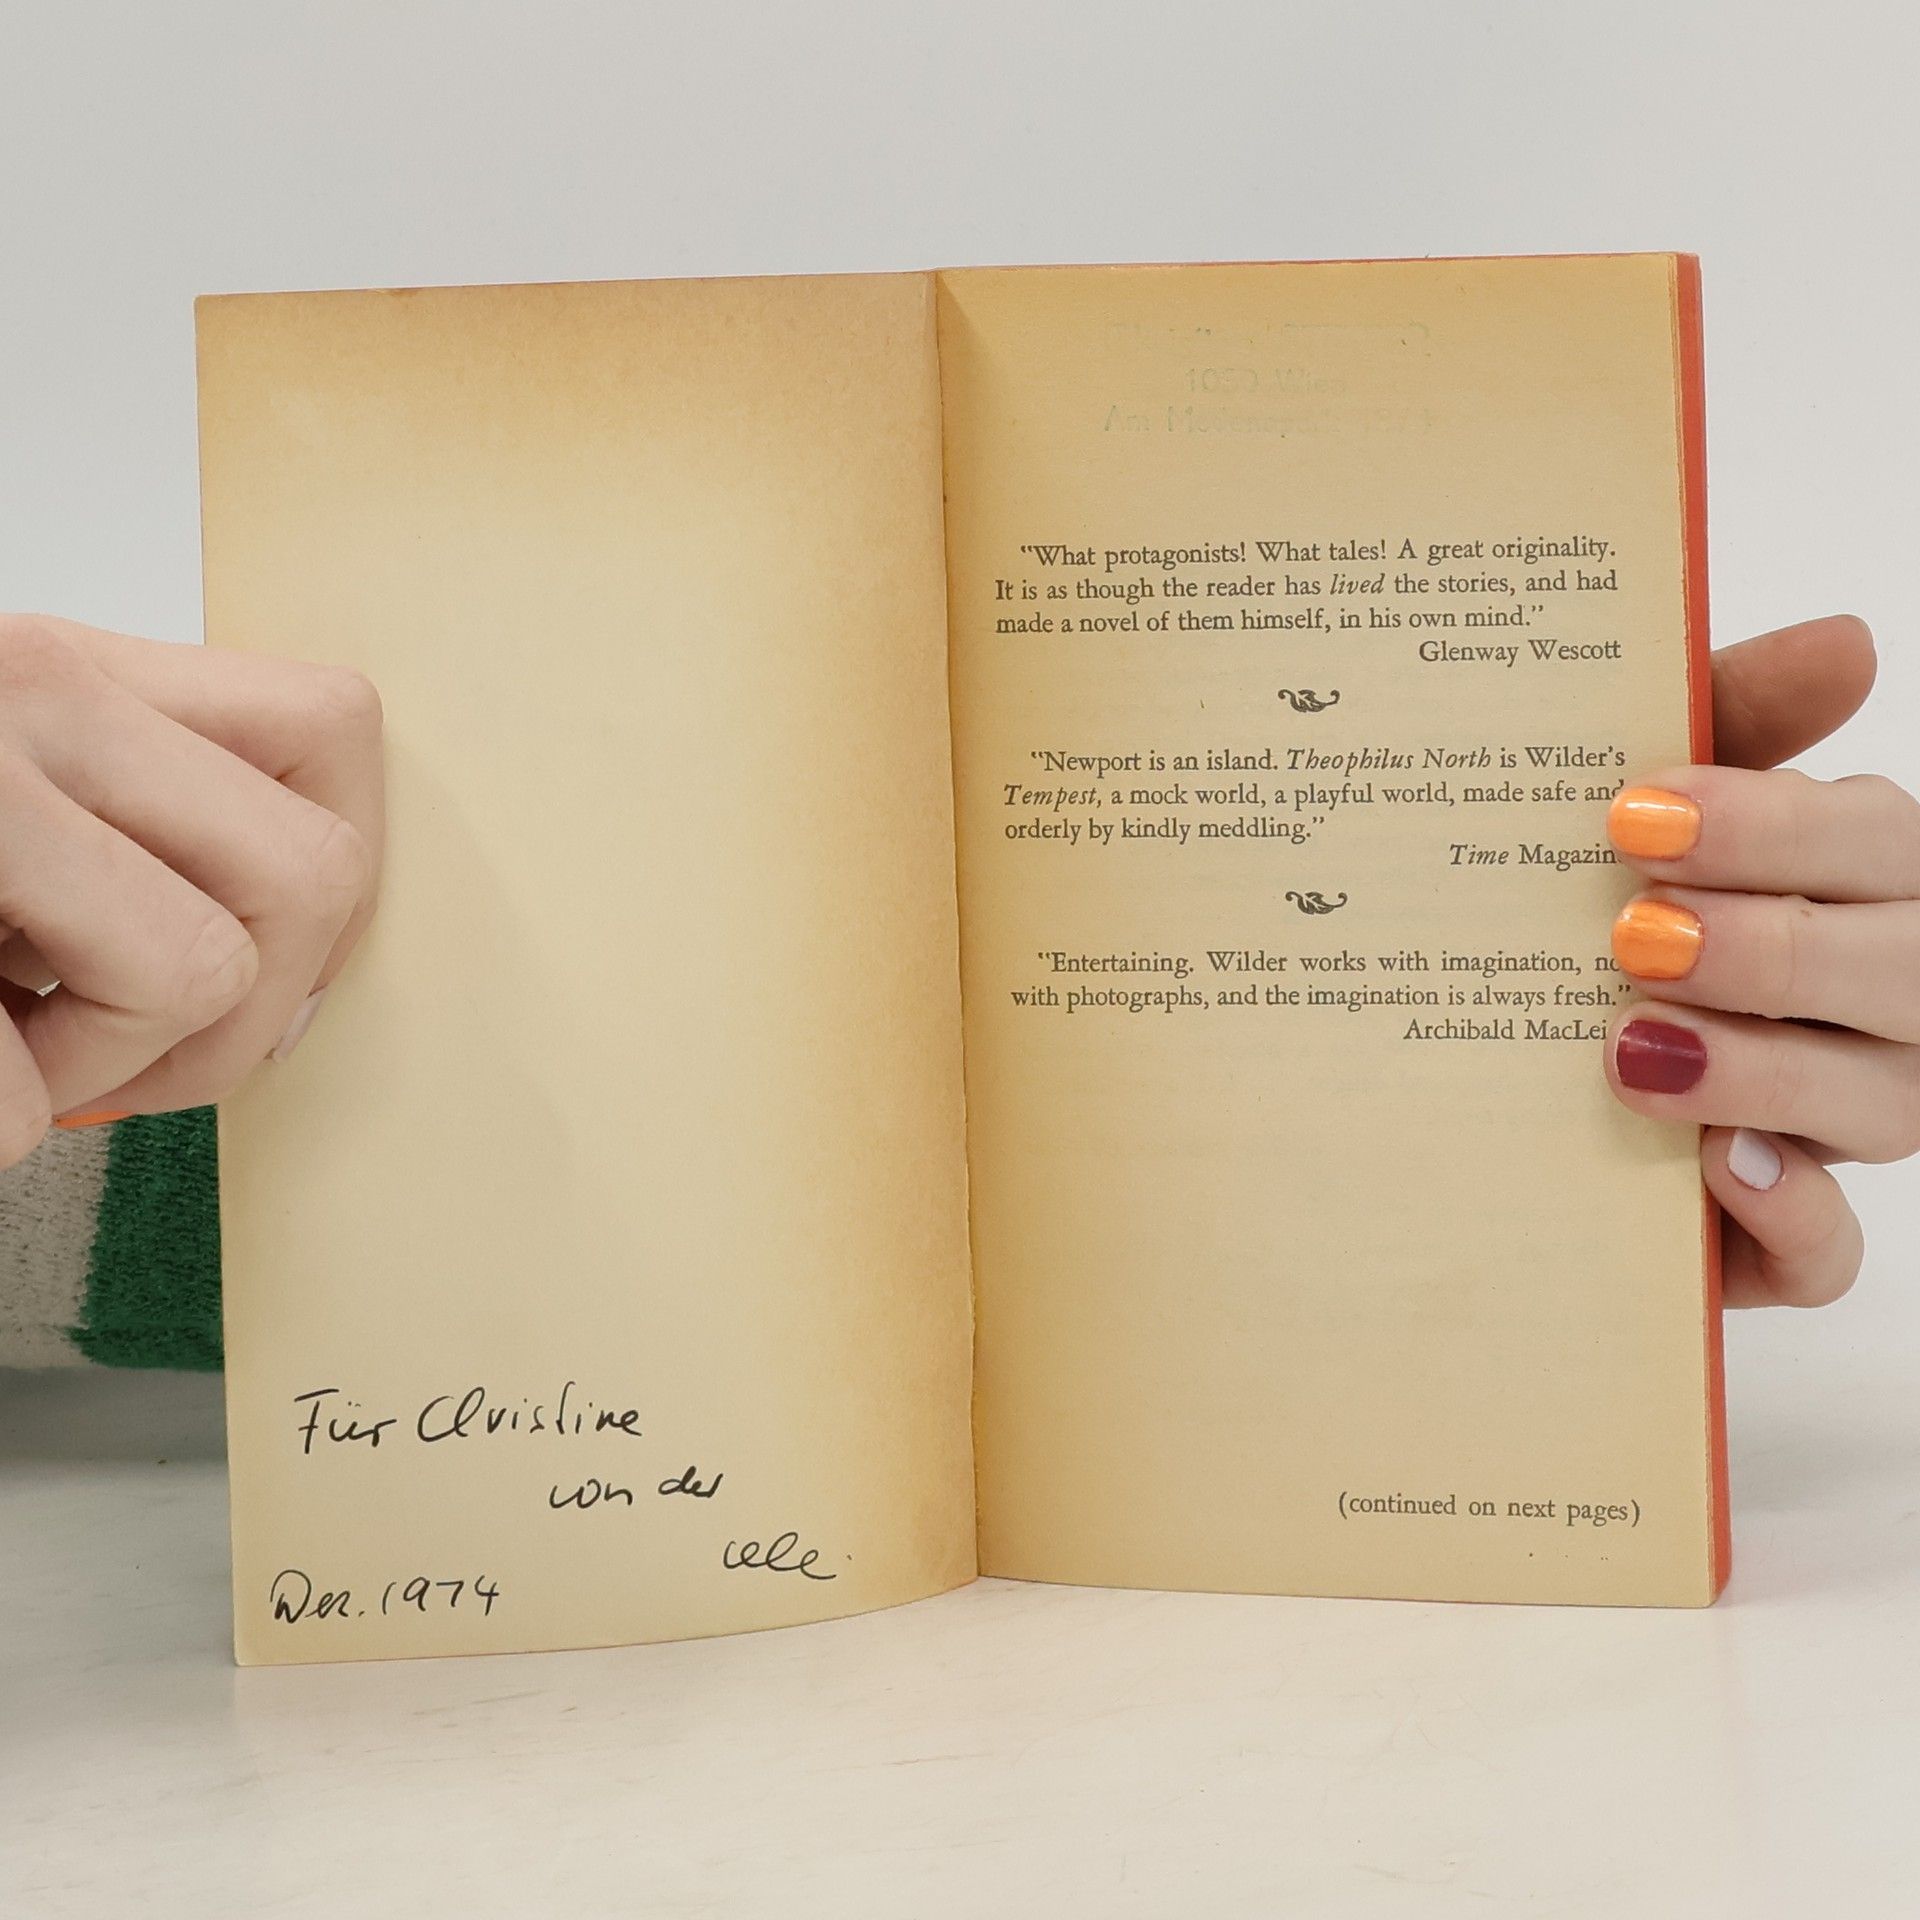 Für Christine
von der
Dez. 1974
Wien
Am
"What protagonists! What tales! A great originality.
It is as though the reader has lived the stories, and had
made a novel of them himself, in his own mind."
Glenway Wescott
"Newport is an island. Theophilus North is Wilder's
Tempest, a mock world, a playful world, made safe and
orderly by kindly meddling."
Time Magazin
"Entertaining. Wilder works with imagination, no
with photographs, and the imagination is always fresh."
Archibald MacLei
(continued on next pages)